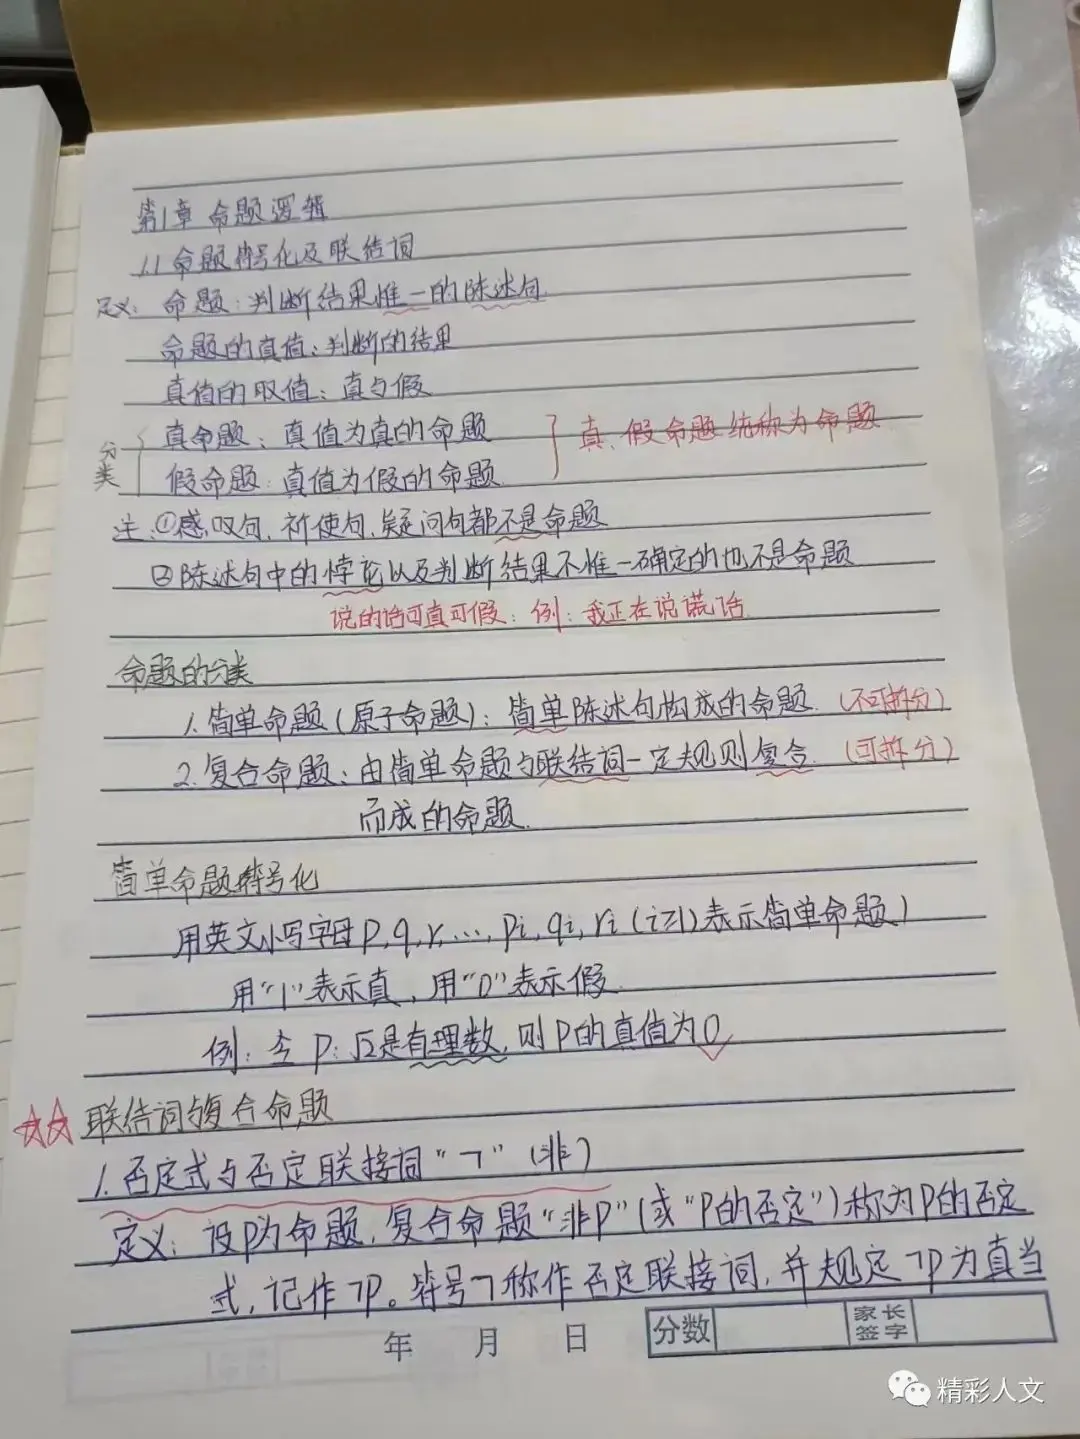 第1章 命题逻辑
1.1 命题符号化及联结词
定义: 命题:判断结果惟一的陈述句.
命题的真值:判断的结果
真值的取值:真与假
分类 真命题:真值为真的命题
假命题:真值为假的命题.
真、假命题 统称为命题
注:①感叹句、祈使句、疑问句都不是命题
②陈述句中的悖论以及判断结果不惟一确定的也不是命题
说的话可真可假:例:我正在说谎话.
命题的分类
1.简单命题(原子命题):简单陈述句构成的命题.(不可拆分)
2.复合命题:由简单命题与联结词一定规则复合.(可拆分)
而成的命题.
简单命题符号化
用英文小写字母p,q,r,…,pi,qi,ri(i≥1)表示简单命题)
用“1”表示真,用“0”表示假.
例:令 p:√2是有理数,则p的真值为0
☆☆ 联结词与复合命题
1.否定式与否定联接词“¬”(非)
定义:设p为命题,复合命题“非p”(或“p的否定”)称为p的否定
式,记作¬p。符号¬称作否定联接词,并规定¬p为真当
年 月 日 分数 家长签字
精彩人文